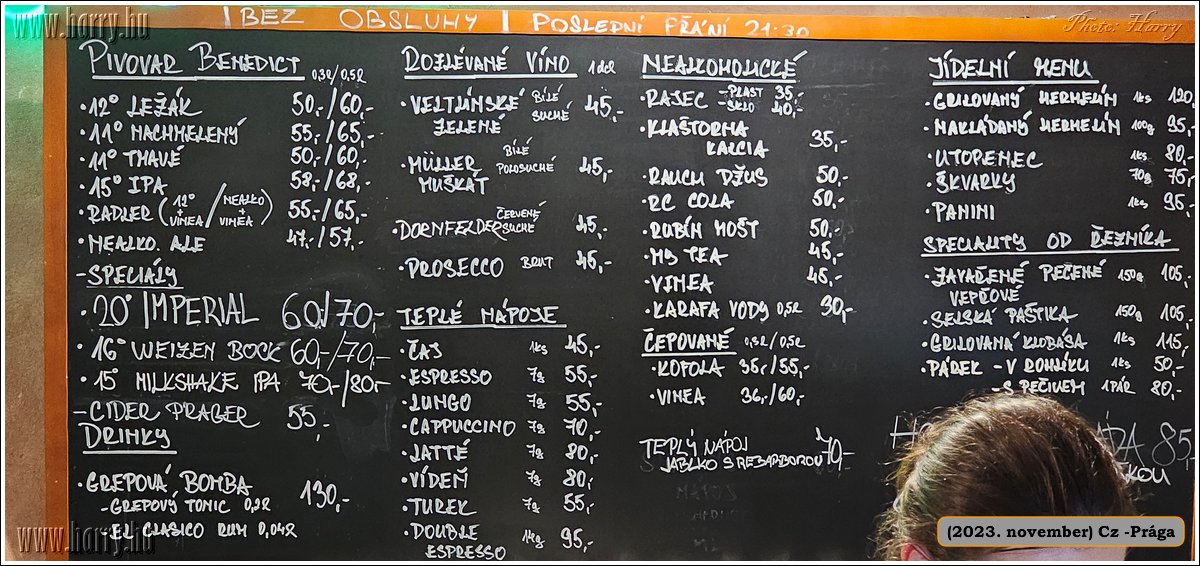 www.harry.hu
BEZ OBSLUHY | POSLEDNÍ PŘÁNÍ 21:30
Photo: Harry
PIVOVAR BENEDICT 0,3l/0,5l
·12° LEŽÁK 50,-/60,-
·11° NACHMELENÝ 55,-/65,-
·11° TMAVÉ 50,-/60,-
·15° IPA 58,-/68,-
·RADLER (12° + VINEA / NEALKO + VINEA) 55,-/65,-
·NEALKO. ALE 47,-/57,-
-SPECIÁLY
·20° IMPERIAL 60/70,-
·16° WEIZEN BOCK 60,-/70,-
·15° MILKSHAKE IPA 70,-/80,-
-CIDER PRAGER 55,-
DRINKY
·GREPOVÁ BOMBA 130,-
-GREPOVÝ TONIC 0,2l
-EL CLASICO RUM 0,04l
ROZLÉVANÉ VÍNO 1dcl
·VELTLÍNSKÉ ZELENÉ BÍLÉ SUCHÉ 45,-
·MÜLLER MUŠKÁT BÍLÉ POLOSUCHÉ 45,-
·DORNFELDER ČERVENÉ SUCHÉ 45,-
·PROSECCO BRUT 45,-
TEPLÉ NÁPOJE
·ČAJ 1ks 45,-
·ESPRESSO 7g 55,-
·LUNGO 7g 55,-
·CAPPUCCINO 7g 70,-
·LATTÉ 7g 80,-
·VÍDEŇ 7g 80,-
·TUREK 7g 55,-
·DOUBLE ESPRESSO 14g 95,-
NEALKOHOLICKÉ
·RAJEC -PLAST 35,-
-SKLO 40,-
·KLÁŠTORNA KALCIA 35,-
·RAUCH DŽUS 50,-
·RC COLA 50,-
·RUBÍN MOŠT 50,-
·MY TEA 45,-
·VINEA 45,-
·KARAFA VODY 0,5l 30,-
ČEPOVANÉ 0,3l/0,5l
·KOFOLA 35,-/55,-
·VINEA 36,-/60,-
TEPLÝ NÁPOJ
JABLKO S REBARBOROU 70,-
JÍDELNÍ MENU
·GRILOVANÝ HERMELÍN 1ks 120,
·NAKLÁDANÝ HERMELÍN 100g 95,-
·UTOPENEC 1ks 80,-
·ŠKVARKY 70g 75,-
·PANINI 1ks 95,-
SPECIALITY OD ŘEZNÍKA
·ZAVAŘENÉ PEČENÉ VEPŘOVÉ 150g 105,-
·SELSKÁ PAŠTIKA 150g 105,-
·GRILOVANÁ KLOBÁSA 1ks 115,-
·PÁREK -V ROHLÍKU 1ks 50,-
-S PEČIVEM 1PÁR 80,-
85,-
www.harry.hu
(2023. november) Cz -Prága